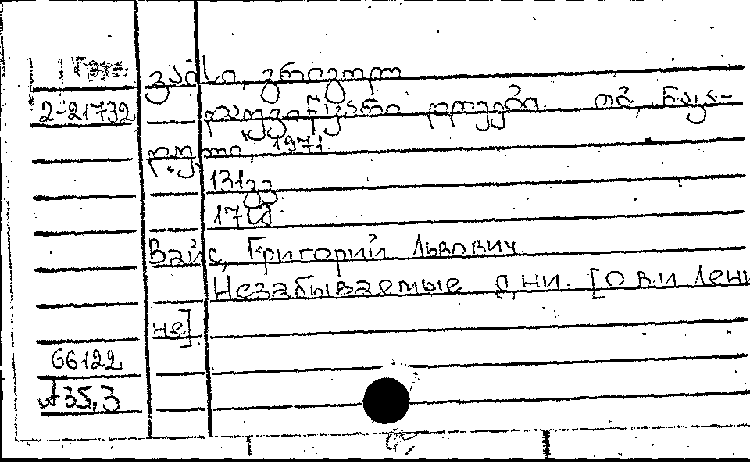 ვაისი, გრიგოლ
2-21732 დაუვიწყარი დღეები. თბ., ნაკა-
დული, 1971
131 გვ
17 სმ
Вайс, Григорий Львович
Незабываемые дни. [О В.И Лени
не]
66122
А35,3